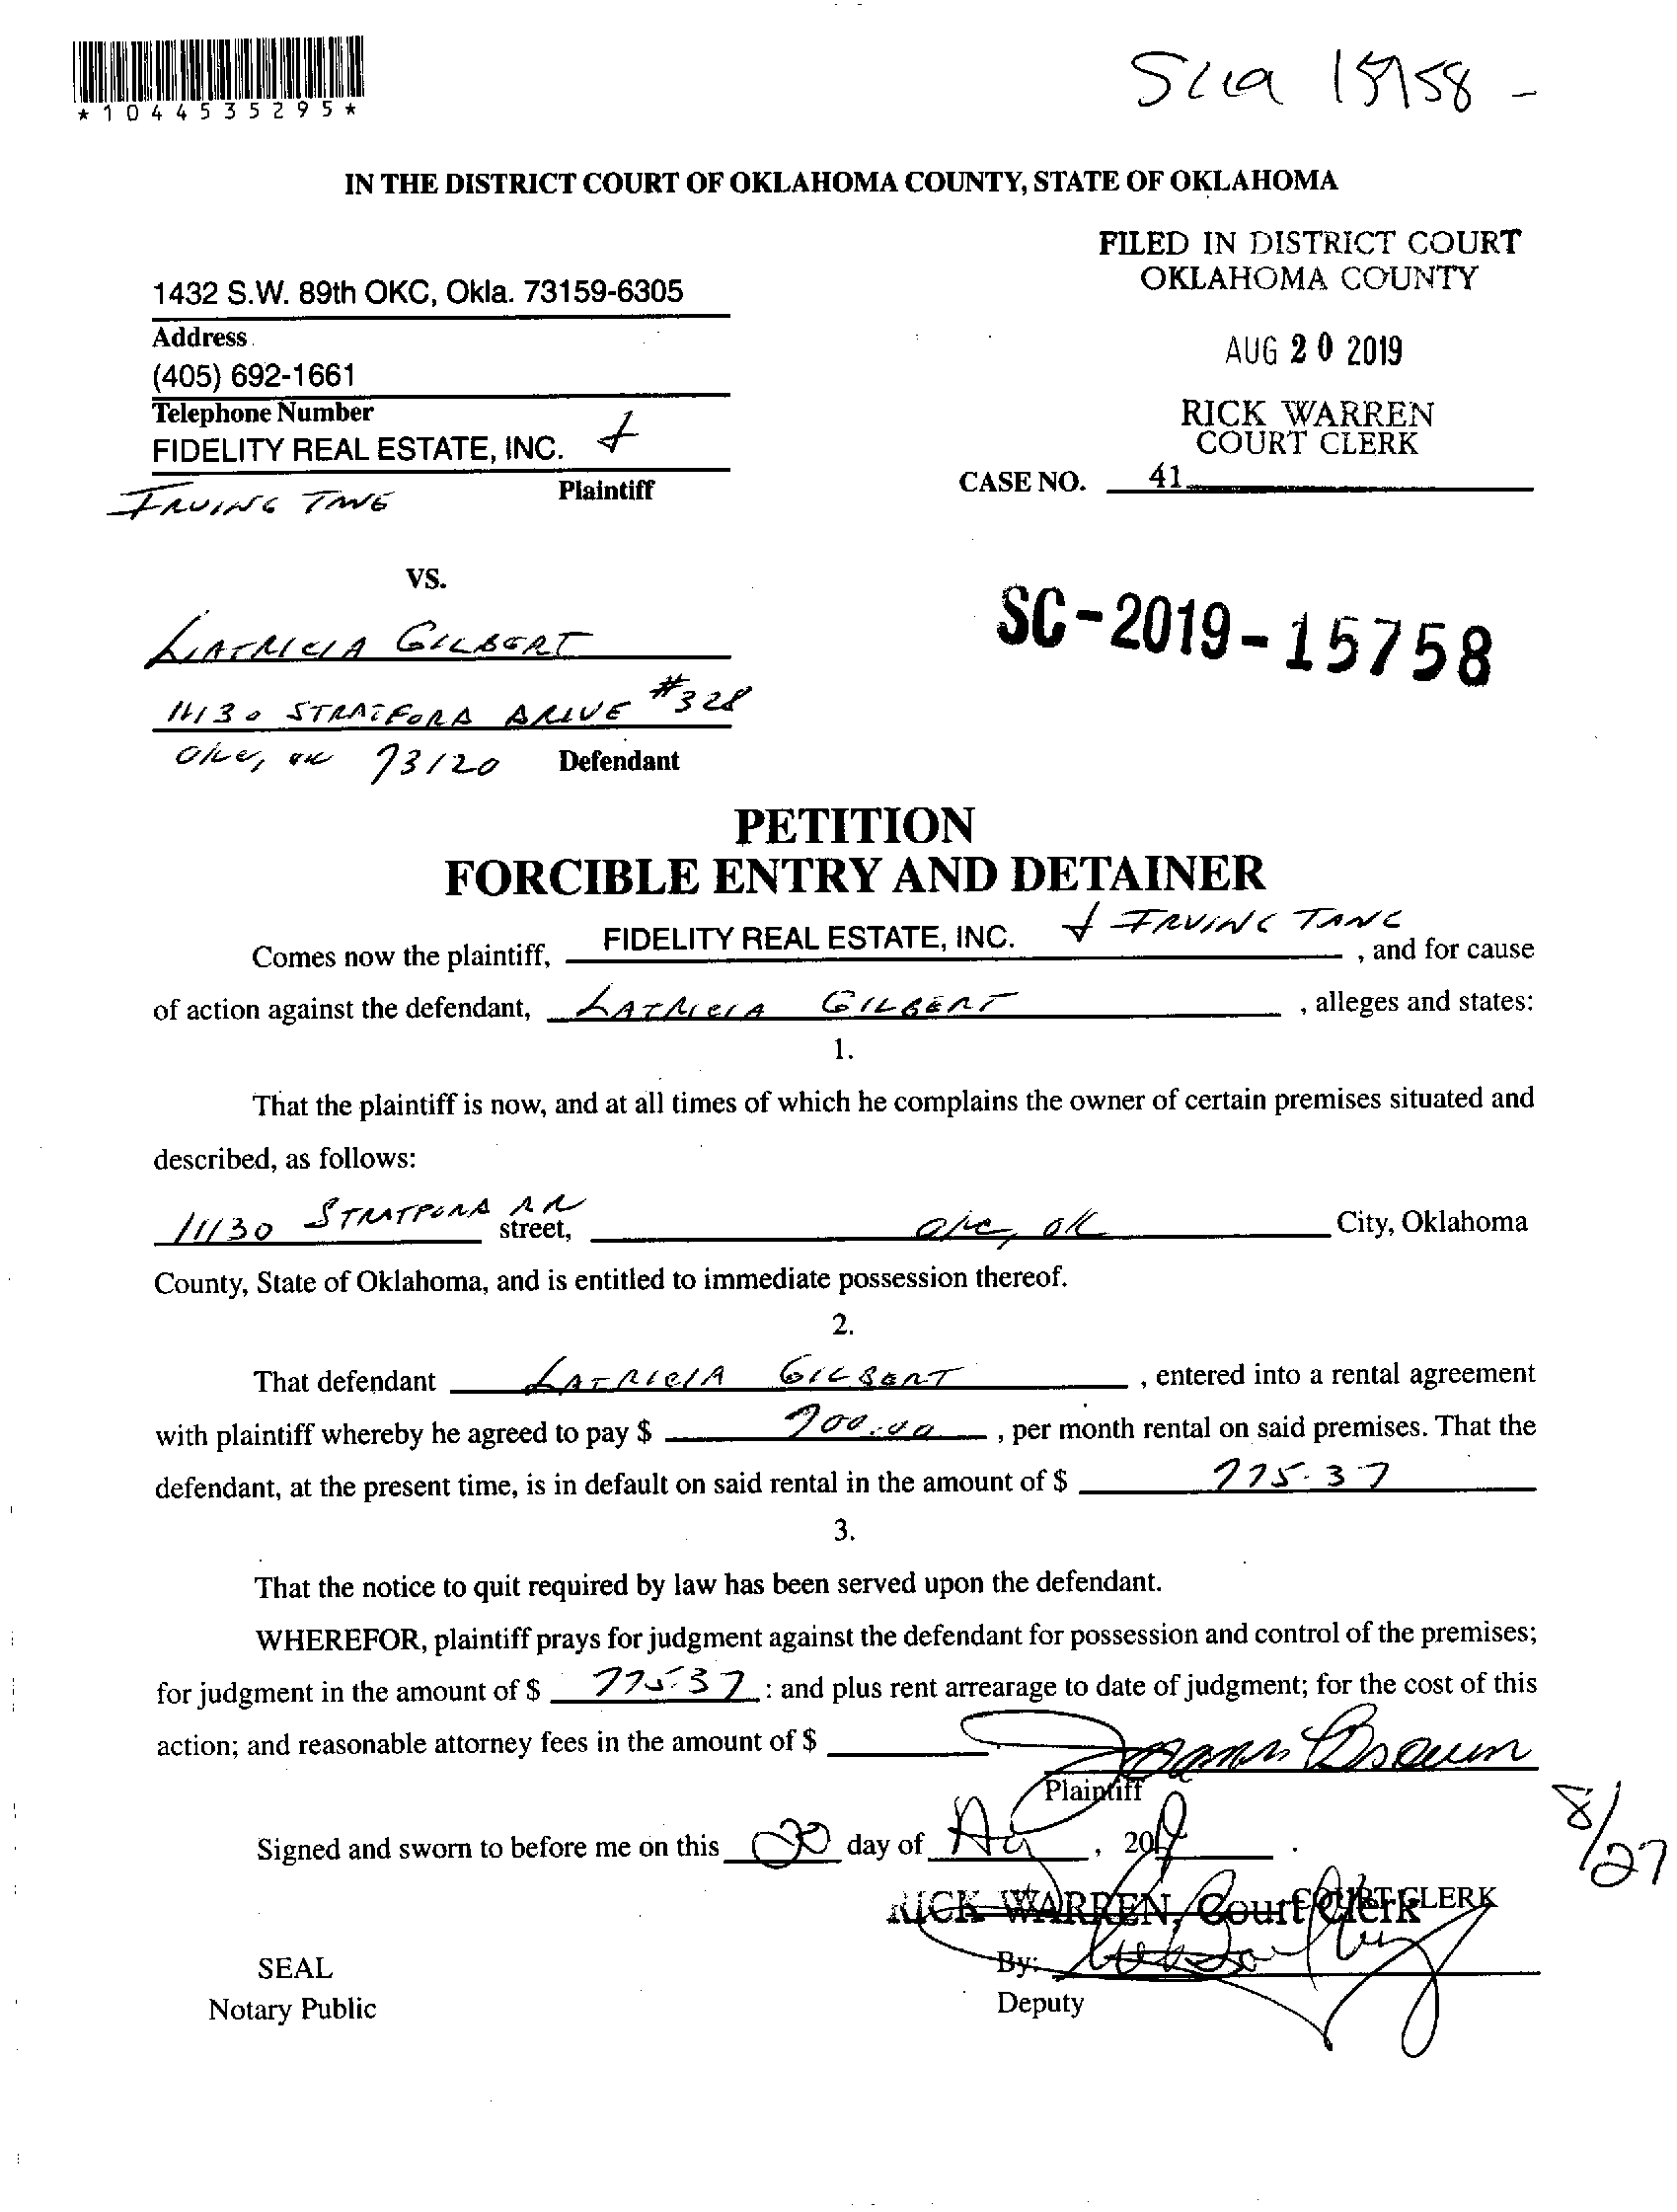 *1044535295*
IN THE DISTRICT COURT OF OKLAHOMA COUNTY, STATE OF OKLAHOMA
FILED IN DISTRICT COURT
OKLAHOMA COUNTY
AUG 20 2019
RICK WARREN
COURT CLERK
1432 S.W. 89th OKC, Okla. 73159-6305
Address
(405) 692-1661
Telephone Number
FIDELITY REAL ESTATE, INC. +
IRVING TANG Plaintiff
CASE NO. 41
VS.
SC-2019-15758
LATRICIA GILBERT
11130 STRATFORD DRIVE #328
OKC, OK 73120 Defendant
PETITION
FORCIBLE ENTRY AND DETAINER
Comes now the plaintiff, FIDELITY REAL ESTATE, INC. + IRVING TANG, and for cause
of action against the defendant, LATRICIA GILBERT, alleges and states:
1.
That the plaintiff is now, and at all times of which he complains the owner of certain premises situated and
described, as follows:
11130 STRATFORD DR street, OKC, OK City, Oklahoma
County, State of Oklahoma, and is entitled to immediate possession thereof.
2.
That defendant LATRICIA GILBERT, entered into a rental agreement
with plaintiff whereby he agreed to pay $ 700.00, per month rental on said premises. That the
defendant, at the present time, is in default on said rental in the amount of $ 775.37
3.
That the notice to quit required by law has been served upon the defendant.
WHEREFOR, plaintiff prays for judgment against the defendant for possession and control of the premises;
for judgment in the amount of $ 775.37: and plus rent arrearage to date of judgment; for the cost of this
action; and reasonable attorney fees in the amount of $
Brown
Plaintiff
8/27
Signed and sworn to before me on this 20 day of Aug, 2019.
RICK WARREN, Court Clerk COURT CLERK
SEAL
By:
Notary Public
Deputy